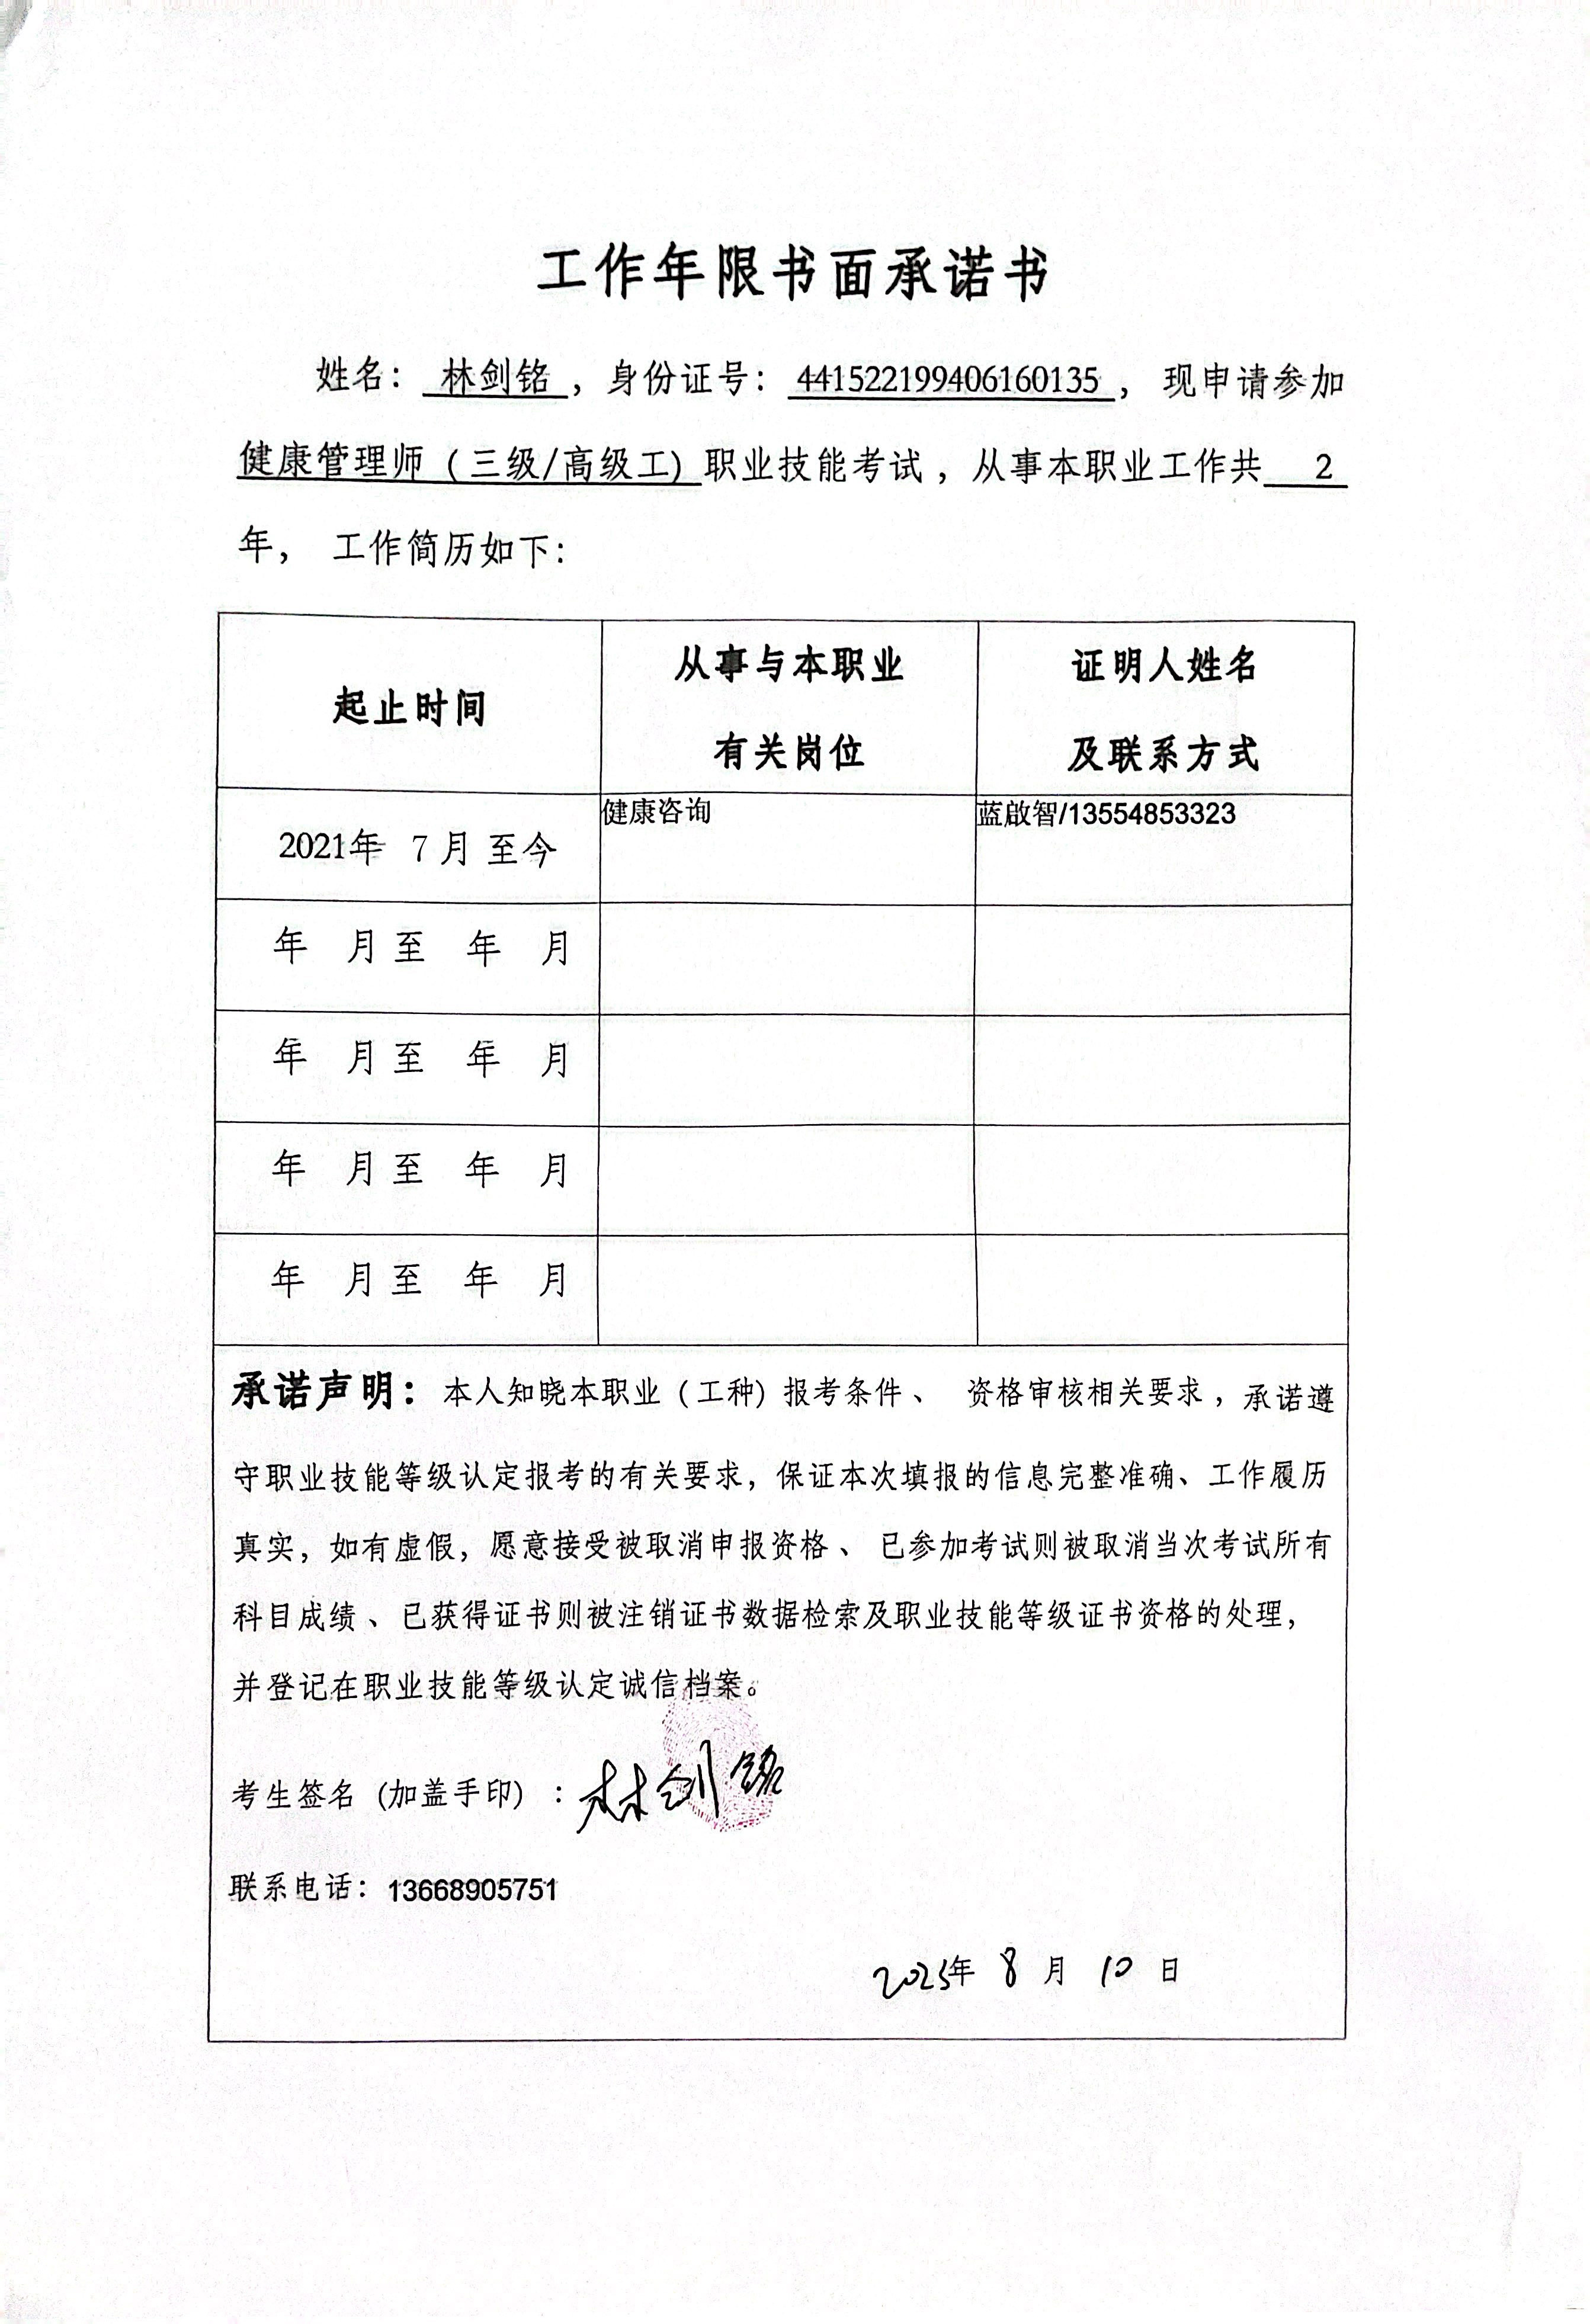 工作年限书面承诺书
姓名： 林剑铭 ，身份证号： 441522199406160135 ， 现申请参加
健康管理师（三级/高级工）职业技能考试，从事本职业工作共 2
年， 工作简历如下：
起止时间
从事与本职业
有关岗位
证明人姓名
及联系方式
2021年 7 月 至今
健康咨询
蓝啟智/13554853323
年 月 至 年 月
年 月 至 年 月
年 月 至 年 月
年 月 至 年 月
承诺声明：本人知晓本职业（工种）报考条件、 资格审核相关要求，承诺遵
守职业技能等级认定报考的有关要求，保证本次填报的信息完整准确、工作履历
真实，如有虚假，愿意接受被取消申报资格、 已参加考试则被取消当次考试所有
科目成绩、已获得证书则被注销证书数据检索及职业技能等级证书资格的处理，
并登记在职业技能等级认定诚信档案。
考生签名（加盖手印）：林剑铭
联系电话：13668905751
2025年 8 月 10 日